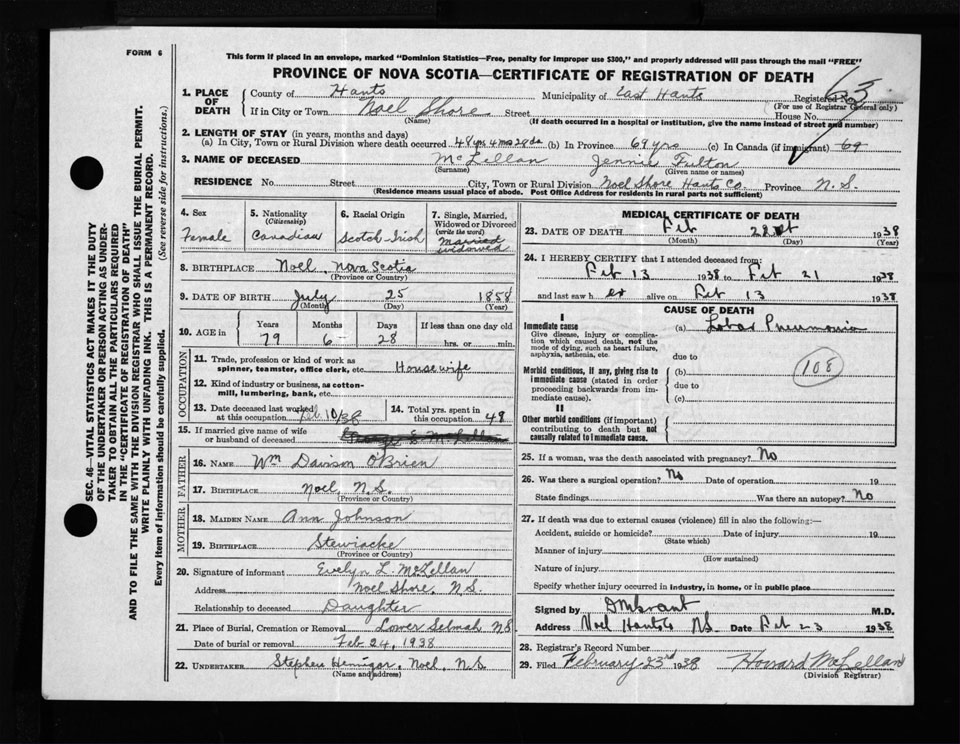 FORM 6
This form if placed in an envelope, marked "Dominion Statistics—Free, penalty for improper use $300," and properly addressed will pass through the mail "FREE"
PROVINCE OF NOVA SCOTIA—CERTIFICATE OF REGISTRATION OF DEATH
63
SEC. 46—VITAL STATISTICS ACT MAKES IT THE DUTY
OF THE UNDERTAKER OR PERSON ACTING AS UNDER-
TAKER TO OBTAIN ALL THE PARTICULARS REQUIRED
IN THE "CERTIFICATE OF REGISTRATION OF DEATH"
AND TO FILE THE SAME WITH THE DIVISION REGISTRAR WHO SHALL ISSUE THE BURIAL PERMIT.
WRITE PLAINLY WITH UNFADING INK. THIS IS A PERMANENT RECORD.
Every item of information should be carefully supplied. (See reverse side for instructions.)
1. PLACE OF DEATH
County of Hants Municipality of East Hants Registered No.
(For use of Registrar General only)
If in City or Town Noel Shore Street House No.
(Name) (If death occurred in a hospital or institution, give the name instead of street and number)
2. LENGTH OF STAY (in years, months and days)
(a) In City, Town or Rural Division where death occurred 48 yrs 4 mos 28 ds (b) In Province 69 yrs (c) In Canada (if immigrant) 69
3. NAME OF DECEASED McLellan Jennie Fulton
(Surname) (Given name or names)
RESIDENCE No. Street City, Town or Rural Division Noel Shore Hants Co. Province N.S.
(Residence means usual place of abode. Post Office Address for residents in rural parts not sufficient)
4. Sex 5. Nationality (Citizenship) 6. Racial Origin 7. Single, Married, Widowed or Divorced (write the word)
Female Canadian Scotch-Irish Married
widowed
8. BIRTHPLACE Noel, Nova Scotia
(Province or Country)
9. DATE OF BIRTH July 25 1858
(Month) (Day) (Year)
10. AGE IN Years Months Days If less than one day old
79 6 28 hrs. or min.
OCCUPATION
11. Trade, profession or kind of work as
spinner, teamster, office clerk, etc. Housewife
12. Kind of industry or business, as cotton-
mill, lumbering, bank, etc.
13. Date deceased last worked at this occupation Feb. 10/38 14. Total yrs. spent in this occupation 48
15. If married give name of wife
or husband of deceased George L McLellan
FATHER
16. NAME Wm Davison O'Brien
17. BIRTHPLACE Noel, N.S.
(Province or Country)
MOTHER
18. MAIDEN NAME Ann Johnson
19. BIRTHPLACE Stewiacke
(Province or Country)
20. Signature of informant Evelyn L. McLellan
Address Noel Shore, N.S.
Relationship to deceased Daughter
21. Place of Burial, Cremation or Removal Lower Selmah N.S.
Date of burial or removal Feb 24, 1938
22. UNDERTAKER Stephen Hennigar, Noel, N.S.
(Name and address)
MEDICAL CERTIFICATE OF DEATH
23. DATE OF DEATH Feb 1938
(Month) (Day) (Year)
24. I HEREBY CERTIFY that I attended deceased from:
Feb 13 1938 to Feb 21 1938
and last saw her alive on Feb 13 1938
CAUSE OF DEATH
I
Immediate cause (a) Lobar Pneumonia
Give disease, injury or complica-
tion which caused death, not the
mode of dying, such as heart failure,
asphyxia, asthenia, etc.
due to
108
Morbid conditions, if any, giving rise to
immediate cause (stated in order
proceeding backwards from im-
mediate cause).
(b)
due to
(c)
II
Other morbid conditions (if important)
contributing to death but not
causally related to immediate cause.
25. If a woman, was the death associated with pregnancy? No
26. Was there a surgical operation? No Date of operation 19
State findings Was there an autopsy? No
27. If death was due to external causes (violence) fill in also the following:—
Accident, suicide or homicide? Date of injury 19
(State which)
Manner of injury
(How sustained)
Nature of injury
Specify whether injury occurred in industry, in home, or in public place
Signed by M.D.
Address Noel Hants Co N.S. Date Feb 23 1938
28. Registrar's Record Number
29. Filed February 23rd 1938 Howard McLellan
(Division Registrar)